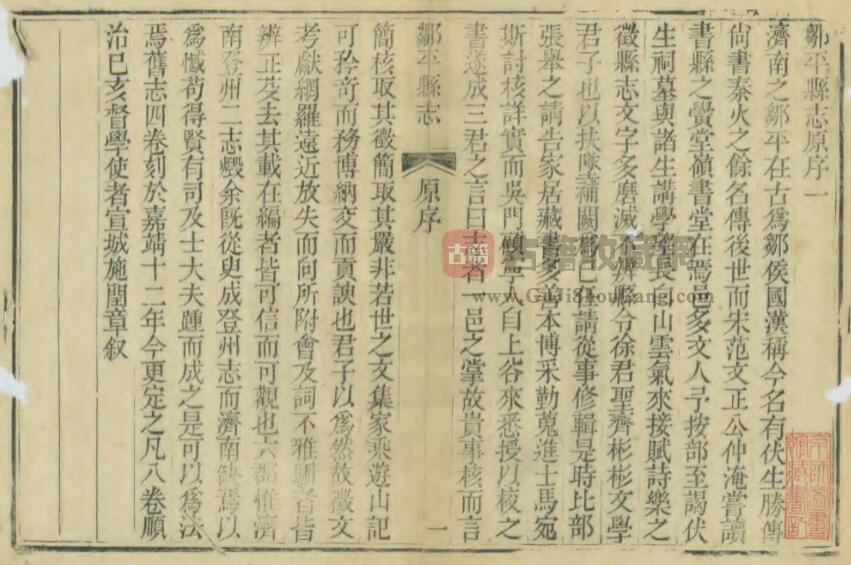 鄒平縣志原序一
濟南之鄒平在古爲鄒侯國漢稱今名有伏生勝傳
尙書秦火之餘名傳後世而宋范文正公仲淹嘗讀
書縣之醴堂嶺書堂在焉邑多文人予按部至謁伏
生祠墓與諸生講學登長白山雲氣來接賦詩樂之
徵縣志文字多磨滅不辨縣令徐君聖齊彬彬文學
君子也以扶墜補闕爲己任請從事修輯是時比部
張舉之請告家居藏書多善本博采勤蒐進士馬宛
斯討核詳實而吳門碩學自上谷來悉授以校之
書遂成三君之言曰志者一邑之掌故貴事核而言
鄒平縣志
原序
一
簡核取其徵簡取其嚴非若世之文集家乘遊山記
可矜奇而務博納交而貢諛也君子以爲然故徵文
考獻網羅遠近放失而向所附會及詞不雅馴者皆
辨正芟去其載在編者皆可信而可觀也六郡惟濟
南登州二志燬余旣從臾成登州志而濟南缺焉以
爲憾苟得賢有司及士大夫踵而成之是可以爲法
焉舊志四卷刻於嘉靖十二年今更定之凡八卷順
治己亥督學使者宣城施閏章叙
古籍
古籍收藏網
www.GuJiShouCang.com